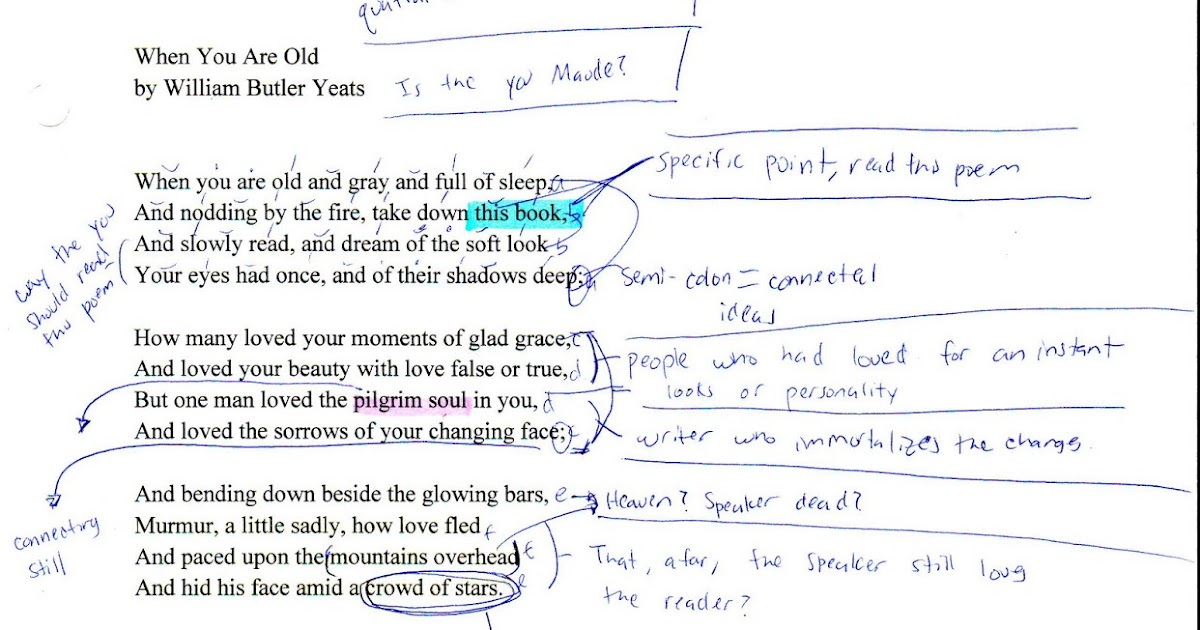 When You Are Old
by William Butler Yeats
Is the you Maude?
When you are old and gray and full of sleep, a
And nodding by the fire, take down this book, b
And slowly read, and dream of the soft look b
Your eyes had once, and of their shadows deep; a
specific point, read this poem
why the you
should read
this poem
semi-colon = connected
ideas
How many loved your moments of glad grace, c
And loved your beauty with love false or true, d
But one man loved the pilgrim soul in you, d
And loved the sorrows of your changing face; c
people who had loved for an instant
looks or personality
writer who immortalizes the change.
And bending down beside the glowing bars, e
Murmur, a little sadly, how love fled f
And paced upon the mountains overhead f
And hid his face amid a crowd of stars. e
connecting
still
Heaven? Speaker dead?
That, afar, the speaker still
the reader?